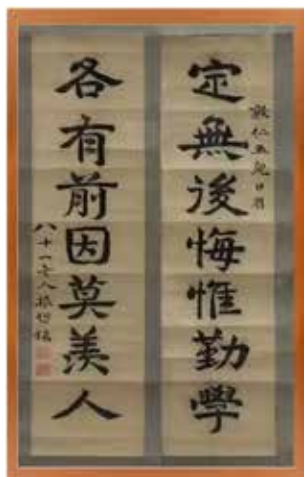 定無後悔惟勤學
各有前因莫羨人
八十一老人